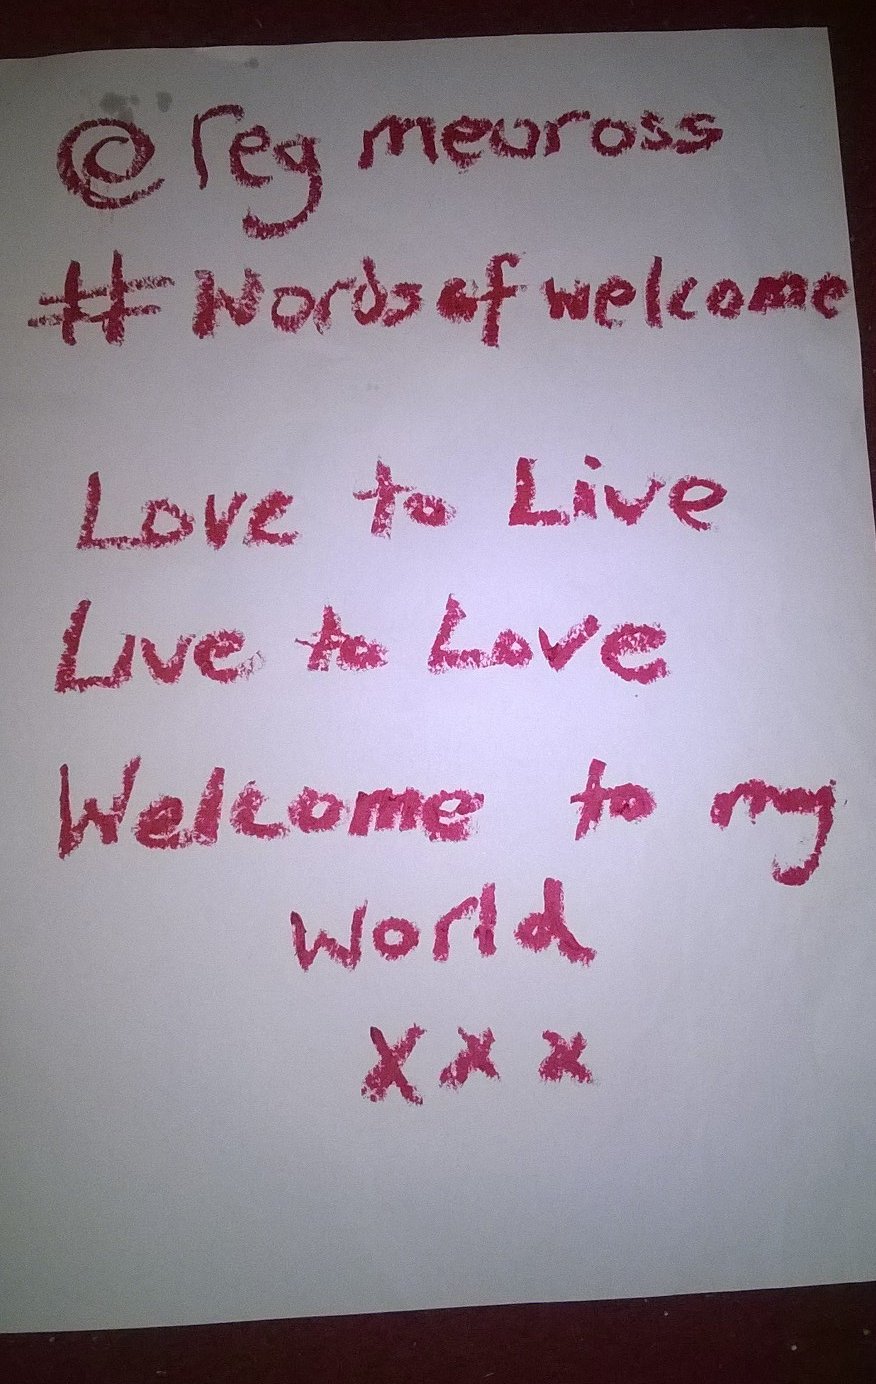 @reg meuross
#Wordsofwelcome
Love to Live
Live to Love
Welcome to my
World
xxx